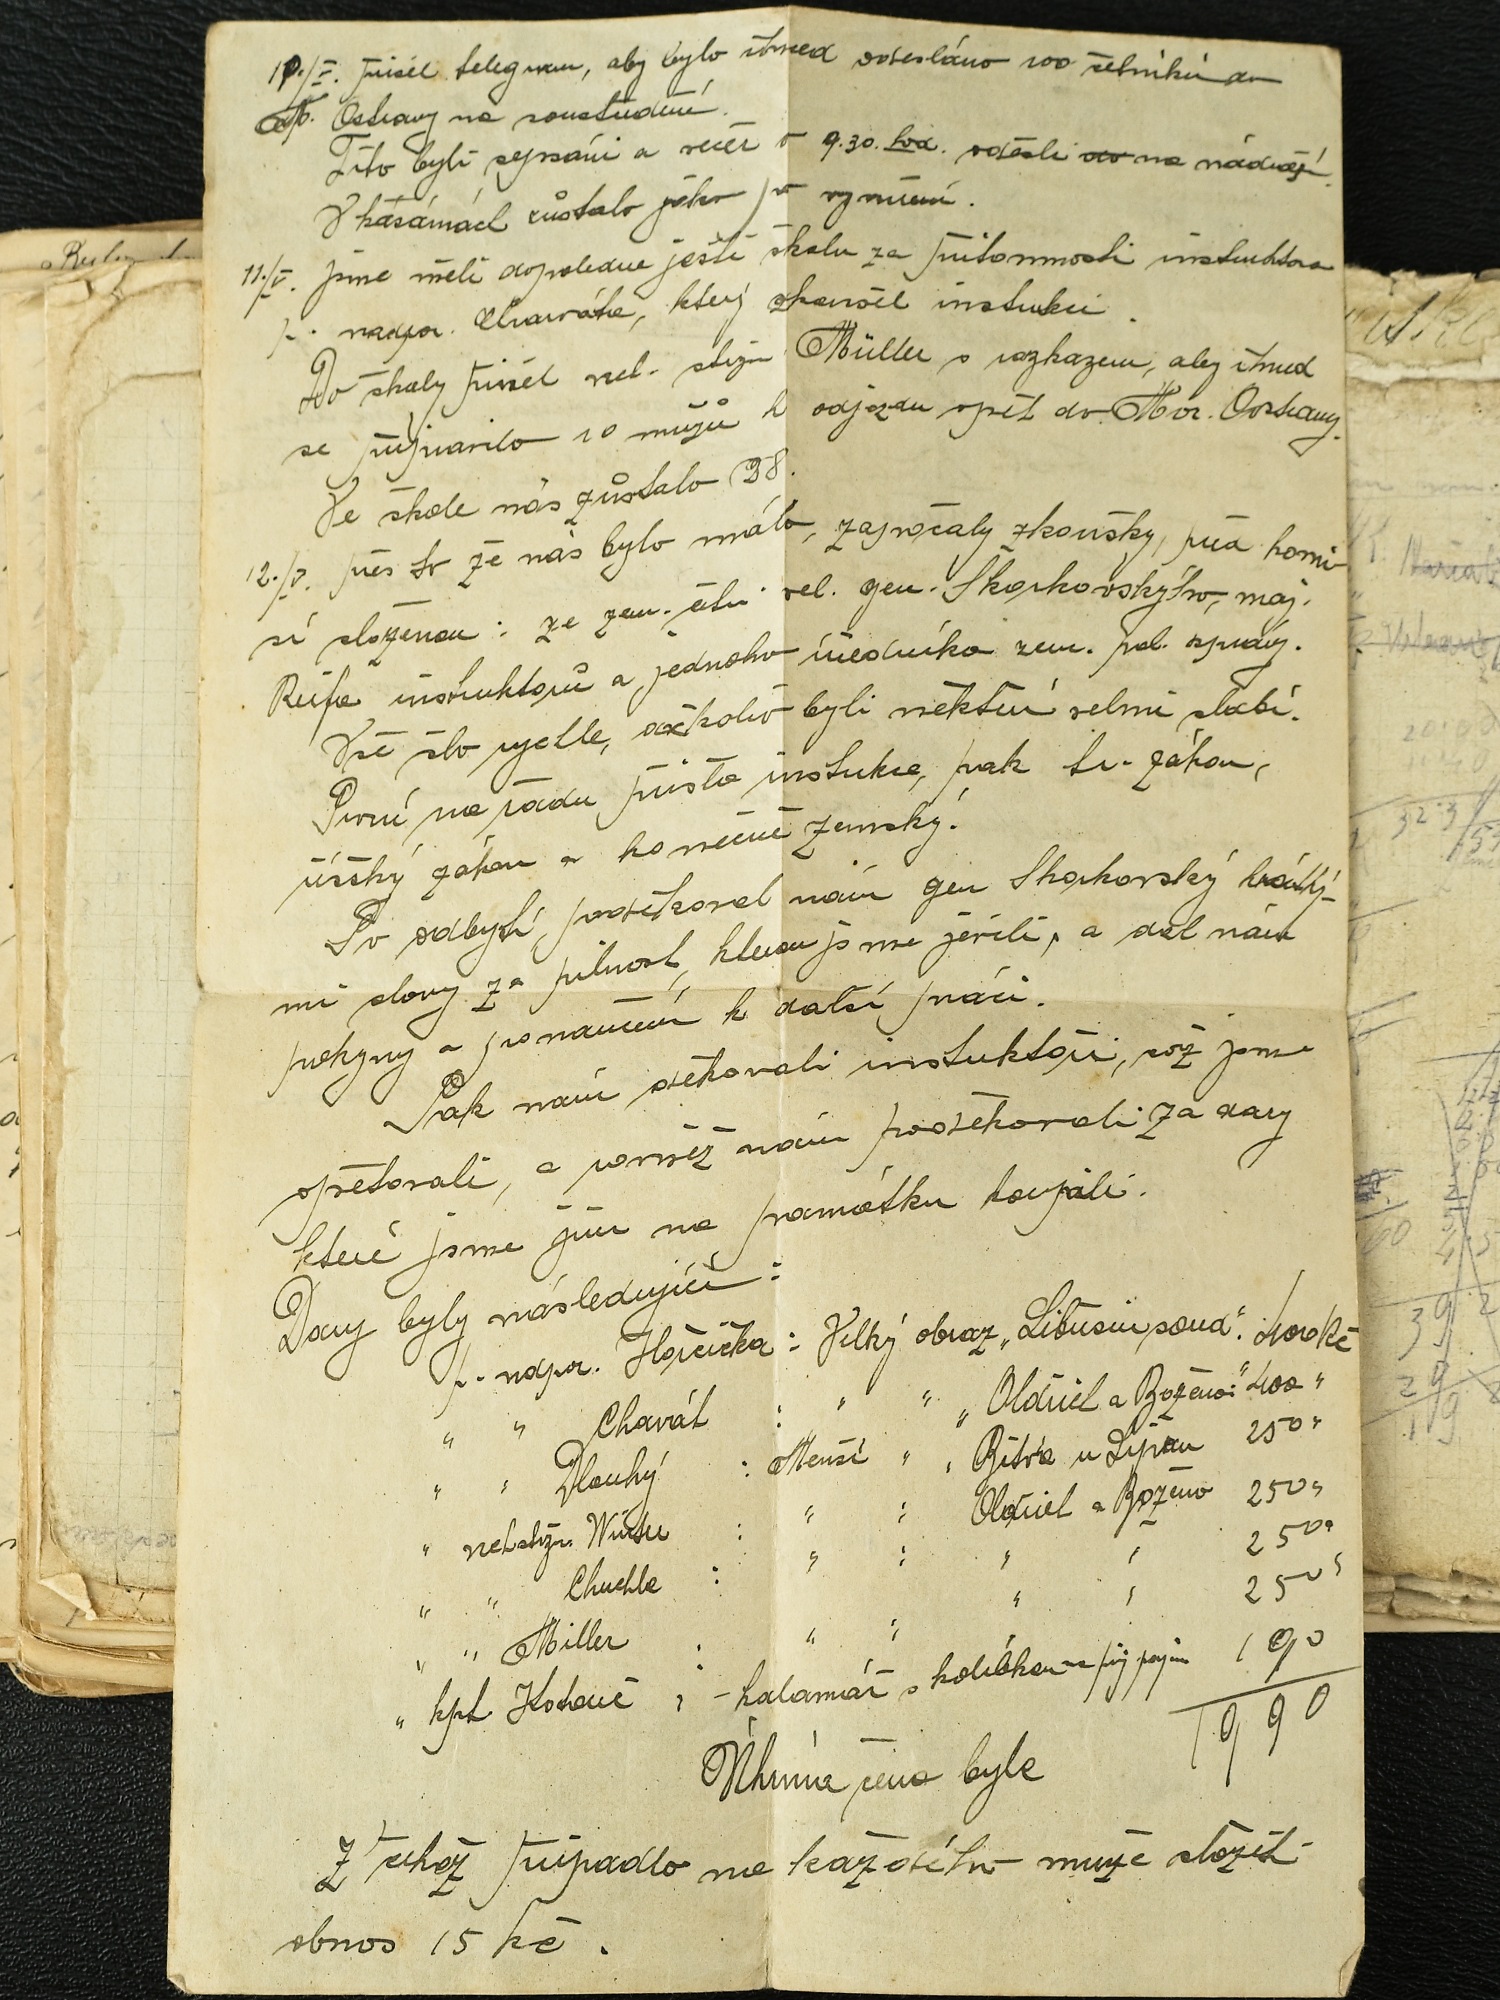 10./V. přišel telegram, aby bylo ihned odesláno 100 četníků do
M. Ostravy na soustředění.
Tito byli sepsáni a večer v 9.30. hod. odešli na nádraží.
V kasárnách zůstalo jako po vymření.
11./V. jsme měli dopoledne ještě školu za přítomnosti instruktora
p. nadpor. Charváta, který skončil instrukci.
Do školy přišel vel. stržm Müller s rozkazem, aby ihned
se připravilo 10 mužů k odjezdu opět do Mor. Ostravy.
Ve škole nás zůstalo 38.
12./V. přes to že nás bylo málo, započaly zkoušky, před komi-
sí složenou: ze zem. čet. vel. gen. Skorkovského, maj.
Reifa instruktorů a jednoho úředníka zem. pol. správy.
Vše šlo rychle, ačkoliv byli někteří velmi slabí.
První na řadu přišla instrukce, pak tr. zákon,
říšský zákon a konečně zemský.
Po odbytí, poděkoval nám gen Skorkovský krátký-
mi slovy za pilnost, kterou jsme jevili, a dal nám
pokyny a ponaučení k další práci.
Pak nám děkovali instruktoři, což jsme
opětovali, a rovněž nám poděkovali za dary
které jsme jim na památku koupili.
Dary byly následující:
p. nadpor. Hořička: Velký obraz „Libušin soud". 400 Kč
" " Charvát : " " „Oldřich a Božena" 400 "
" " Dlouhý : Menší " " Bitva u Lipan 250 "
" vel. stržm. : " : Oldřich a Božena 250 "
" " Chuchla : " : " " 250 "
" " Miller : " " " " 250 "
" kpt. : kalamář s kolébkou 190
1990
Úhrnná cena byla
Z čehož připadlo na každého muže složit
obnos 15 Kč.